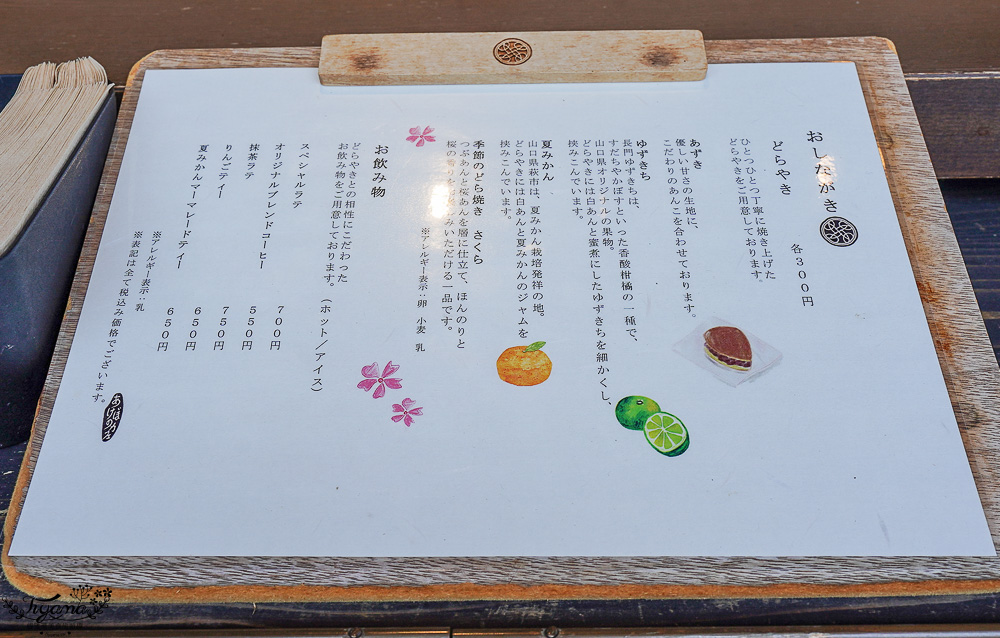 おしながき
どらやき　各300円
ひとつひとつ丁寧に焼き上げた
どらやきをご用意しております。
あずき
優しい甘さの生地に、
こだわりのあんこを合わせております。
ゆずきち
長門ゆずきちは、
すだちやかぼすといった香酸柑橘の一種で、
山口県オリジナルの果物。
どらやきには白あんと蜜煮にしたゆずきちを細かくし、
挟みこんでいます。
夏みかん
山口県萩市は、夏みかん栽培発祥の地。
どらやきには白あんと夏みかんのジャムを
挟みこんでいます。
季節のどら焼き　さくら
つぶあんと桜あんを層に仕立て、ほんのりと
桜の香りをお楽しみいただける一品です。
※アレルギー表示：卵　小麦　乳
お飲み物
どらやきとの相性にこだわった
お飲み物をご用意しております。（ホット／アイス）
スペシャルラテ　700円
オリジナルブレンドコーヒー　550円
抹茶ラテ　750円
りんごティー　650円
夏みかんマーマレードティー　650円
※アレルギー表示：乳
※表記は全て税込み価格でございます。